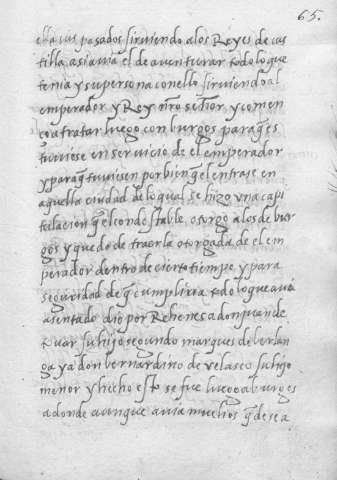 65.
ella sus pasados sirviendo a los Reyes de cas
tilla asi avia el de aventurar todo lo que
tenia y su persona con ello sirviendo al
emperador y Rey nro señor, y començo
a tratar luego con burgos para q̃ es
tuviese en servicio de el emperador
y para q̃ tuviesen por bien q̃ el entrase en
aquella ciudad de lo qual se hizo vna capi
tulacion q̃ el condestable otorgo a los de bur
gos y quedo de traerla otorgada de el em
perador dentro de cierto tiempo y para
seguridad de q̃ cumpliria todo lo que avia
asentado dio por Rehenes a don juan de
tovar su hijo segundo marques de berlan
ga y a don bernardino de velasco su hijo
menor y hecho esto se fue luego a burgos
a donde aunque avia muchos q̃ desea